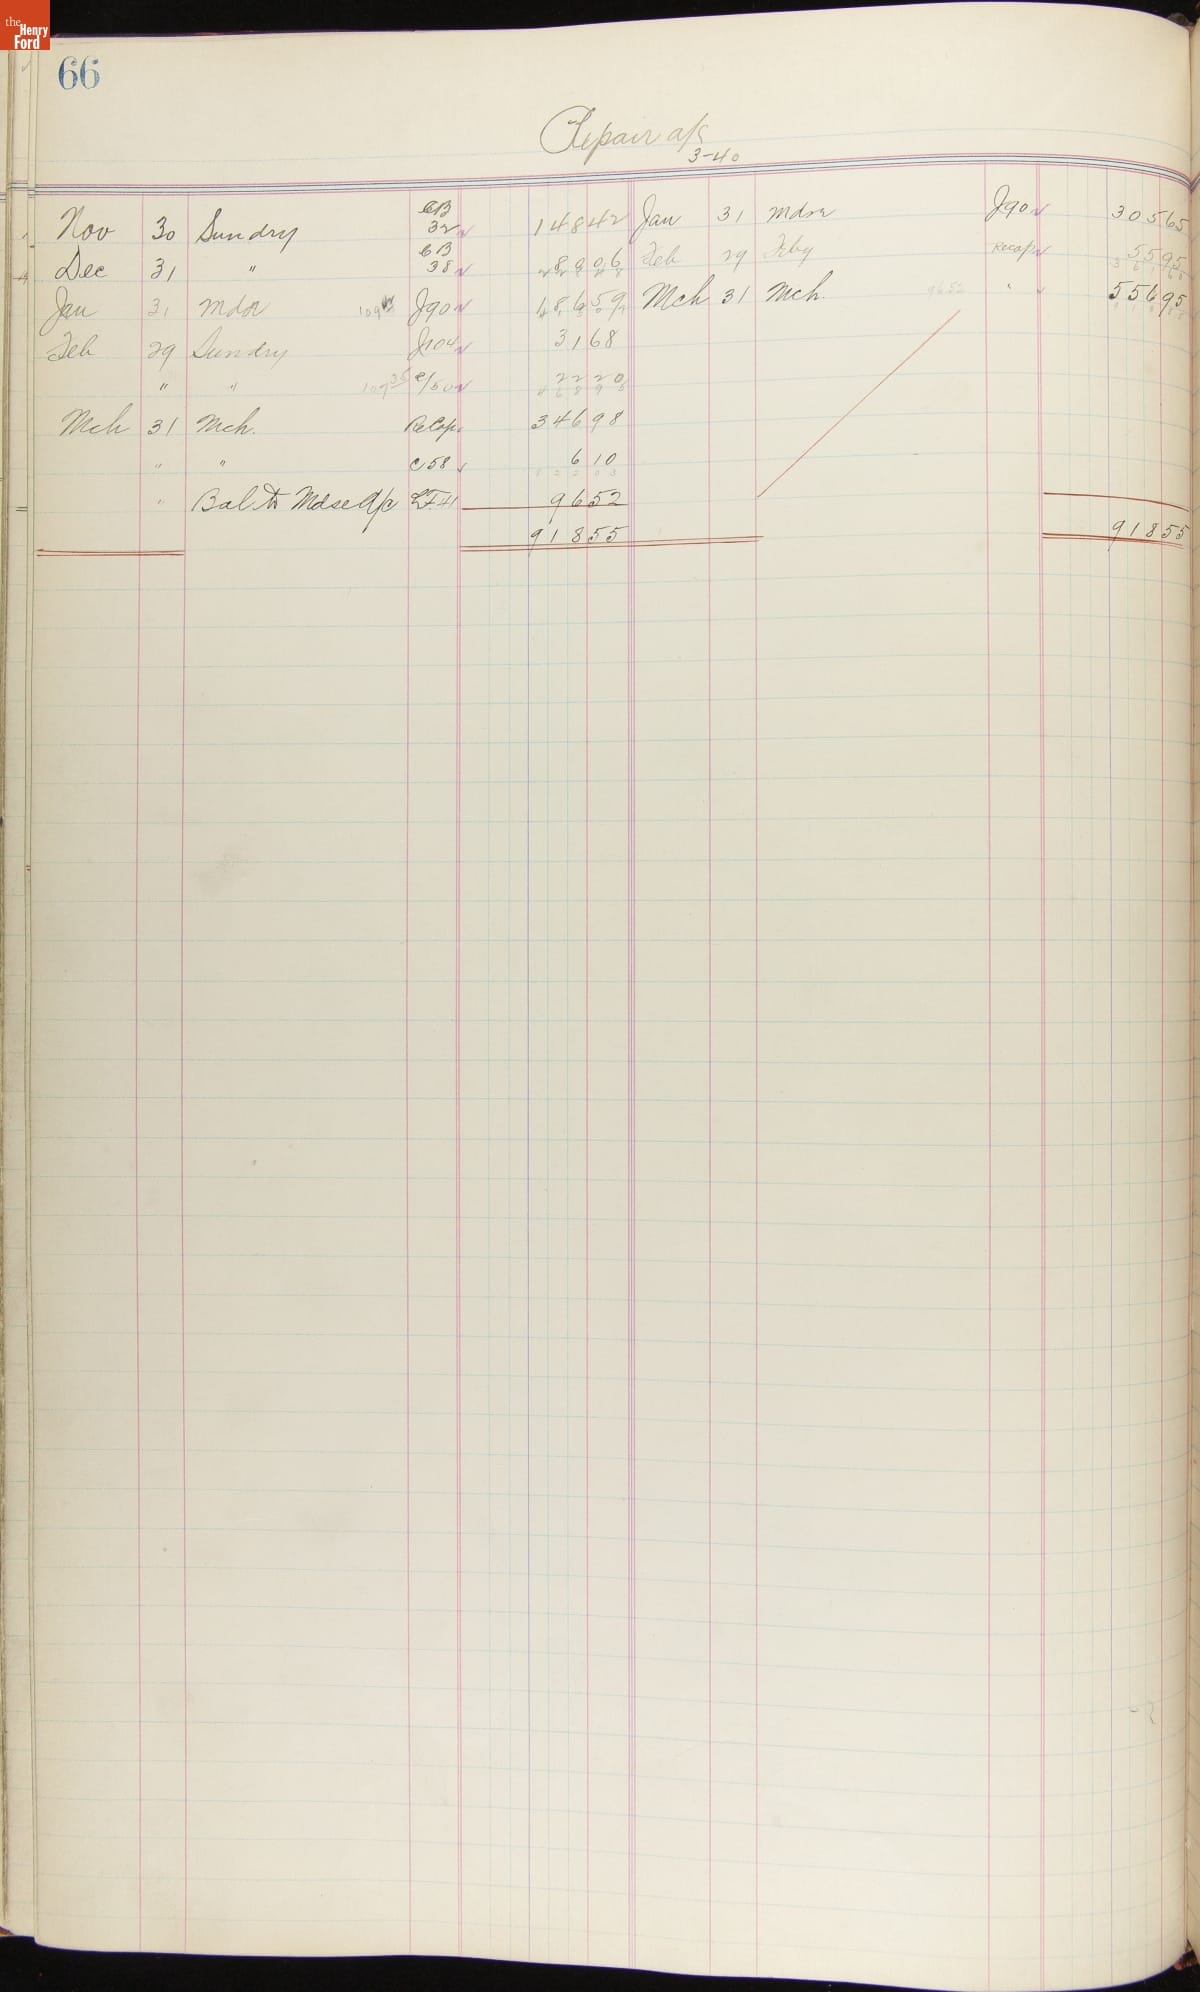 the Henry Ford
66
Repair a/c
3-40
Nov 30 Sundry CB 32 148 42 Jan 31 Mdse J90 305 65
Dec 31 " CB 38 89 06 Feb 29 Feby Recap 55 95
Jan 31 Mdse J90 186 59 Mch 31 Mch. 96 52 " 556 95
Feb 29 Sundry J104 31 68
" " 107 35 C/50 22 20
Mch 31 Mch. ReCap. 346 98
" " C58 6 10
" Bal to Mdse A/c LF41 96 52
918 55 918 55